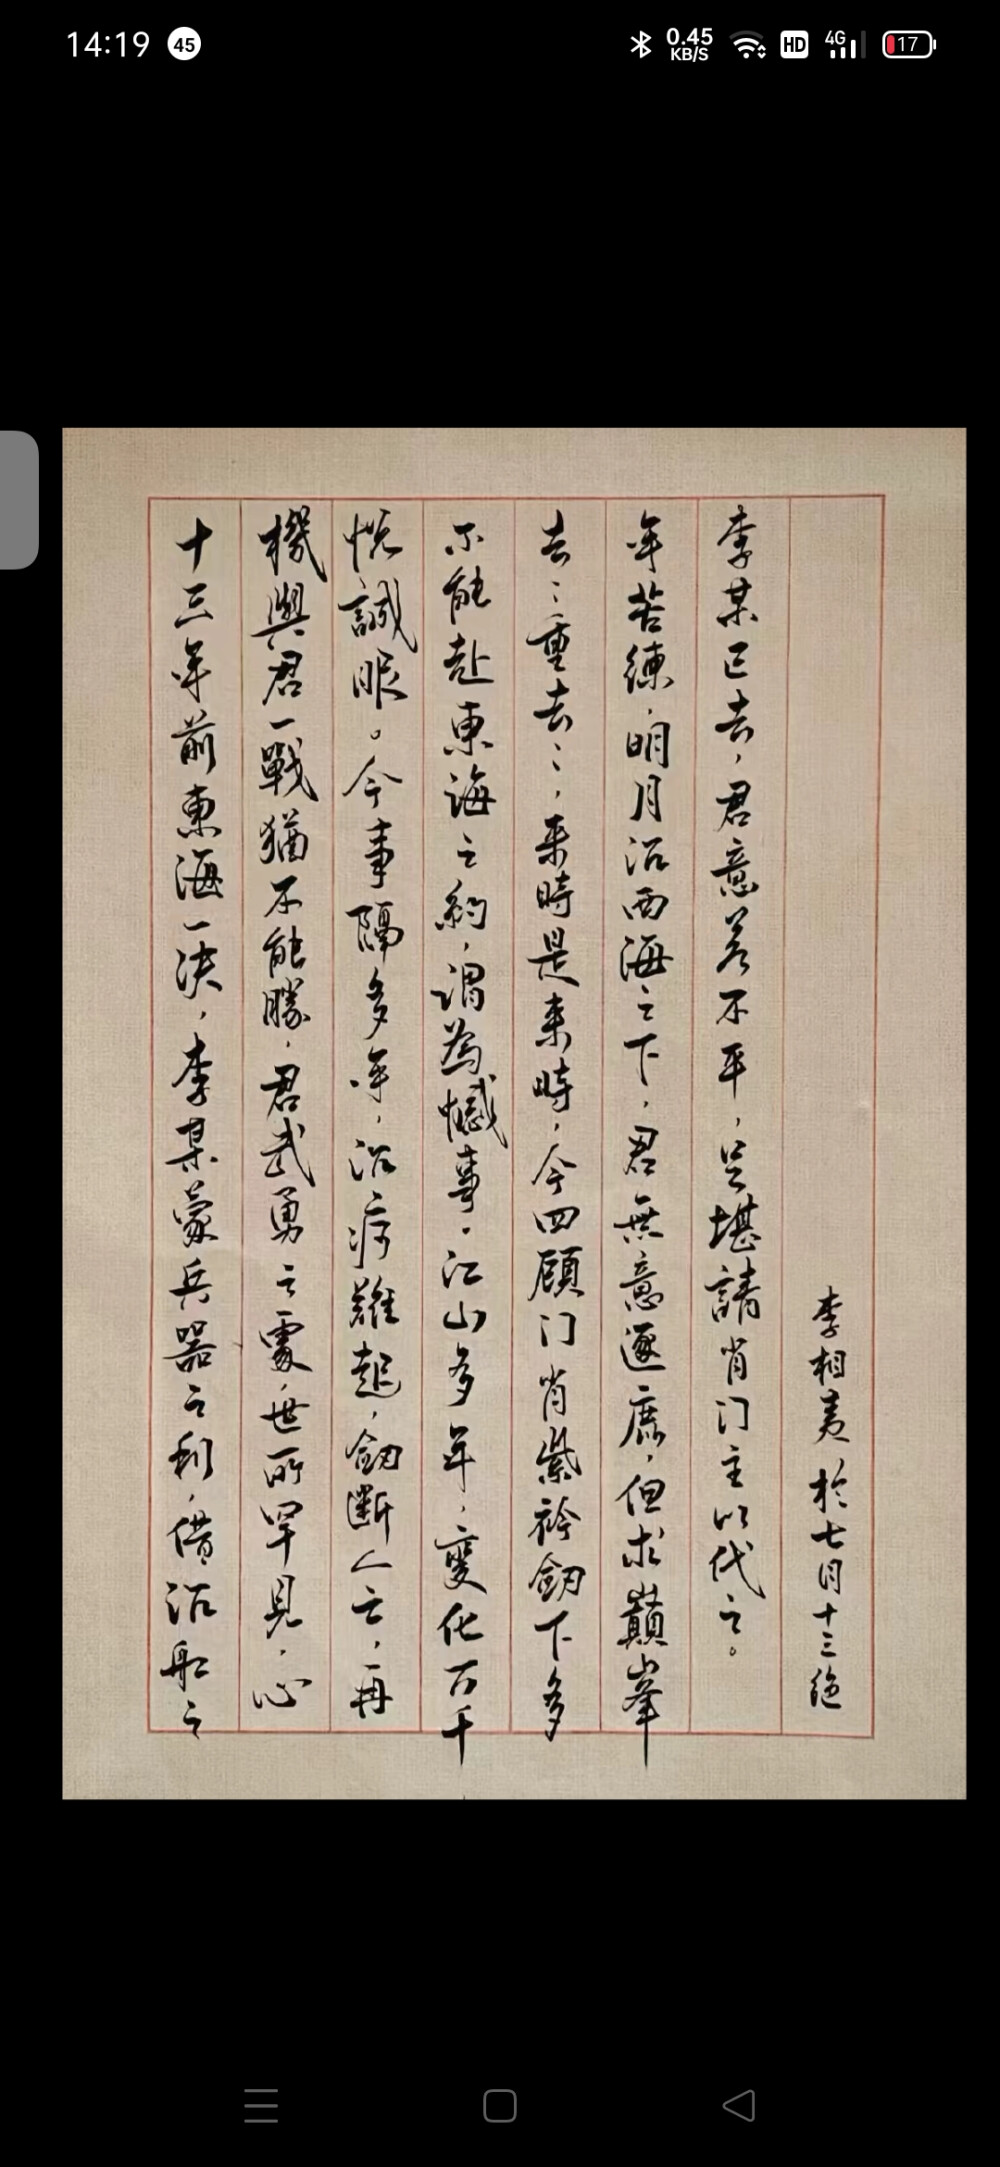 14:19 45 0.45 KB/S HD 4G 17
十三年前東海一决，李某蒙兵器之利，借沉船之
機與君一戰猶不能勝，君武勇之處世所罕見，心
悦誠服。今事隔多年，沉疴難起，劒断人亡，再
不能赴東海之約，謂為憾事。江山多年，變化万千
去〻重去〻，来時是来時，今四顧门肖紫衿劒下多
年苦練，明月沉西海之下，君無意逐鹿，但求巔峯
李某已去，君意若不平，足堪請肖门主以代之。
李相夷 於七月十三絶